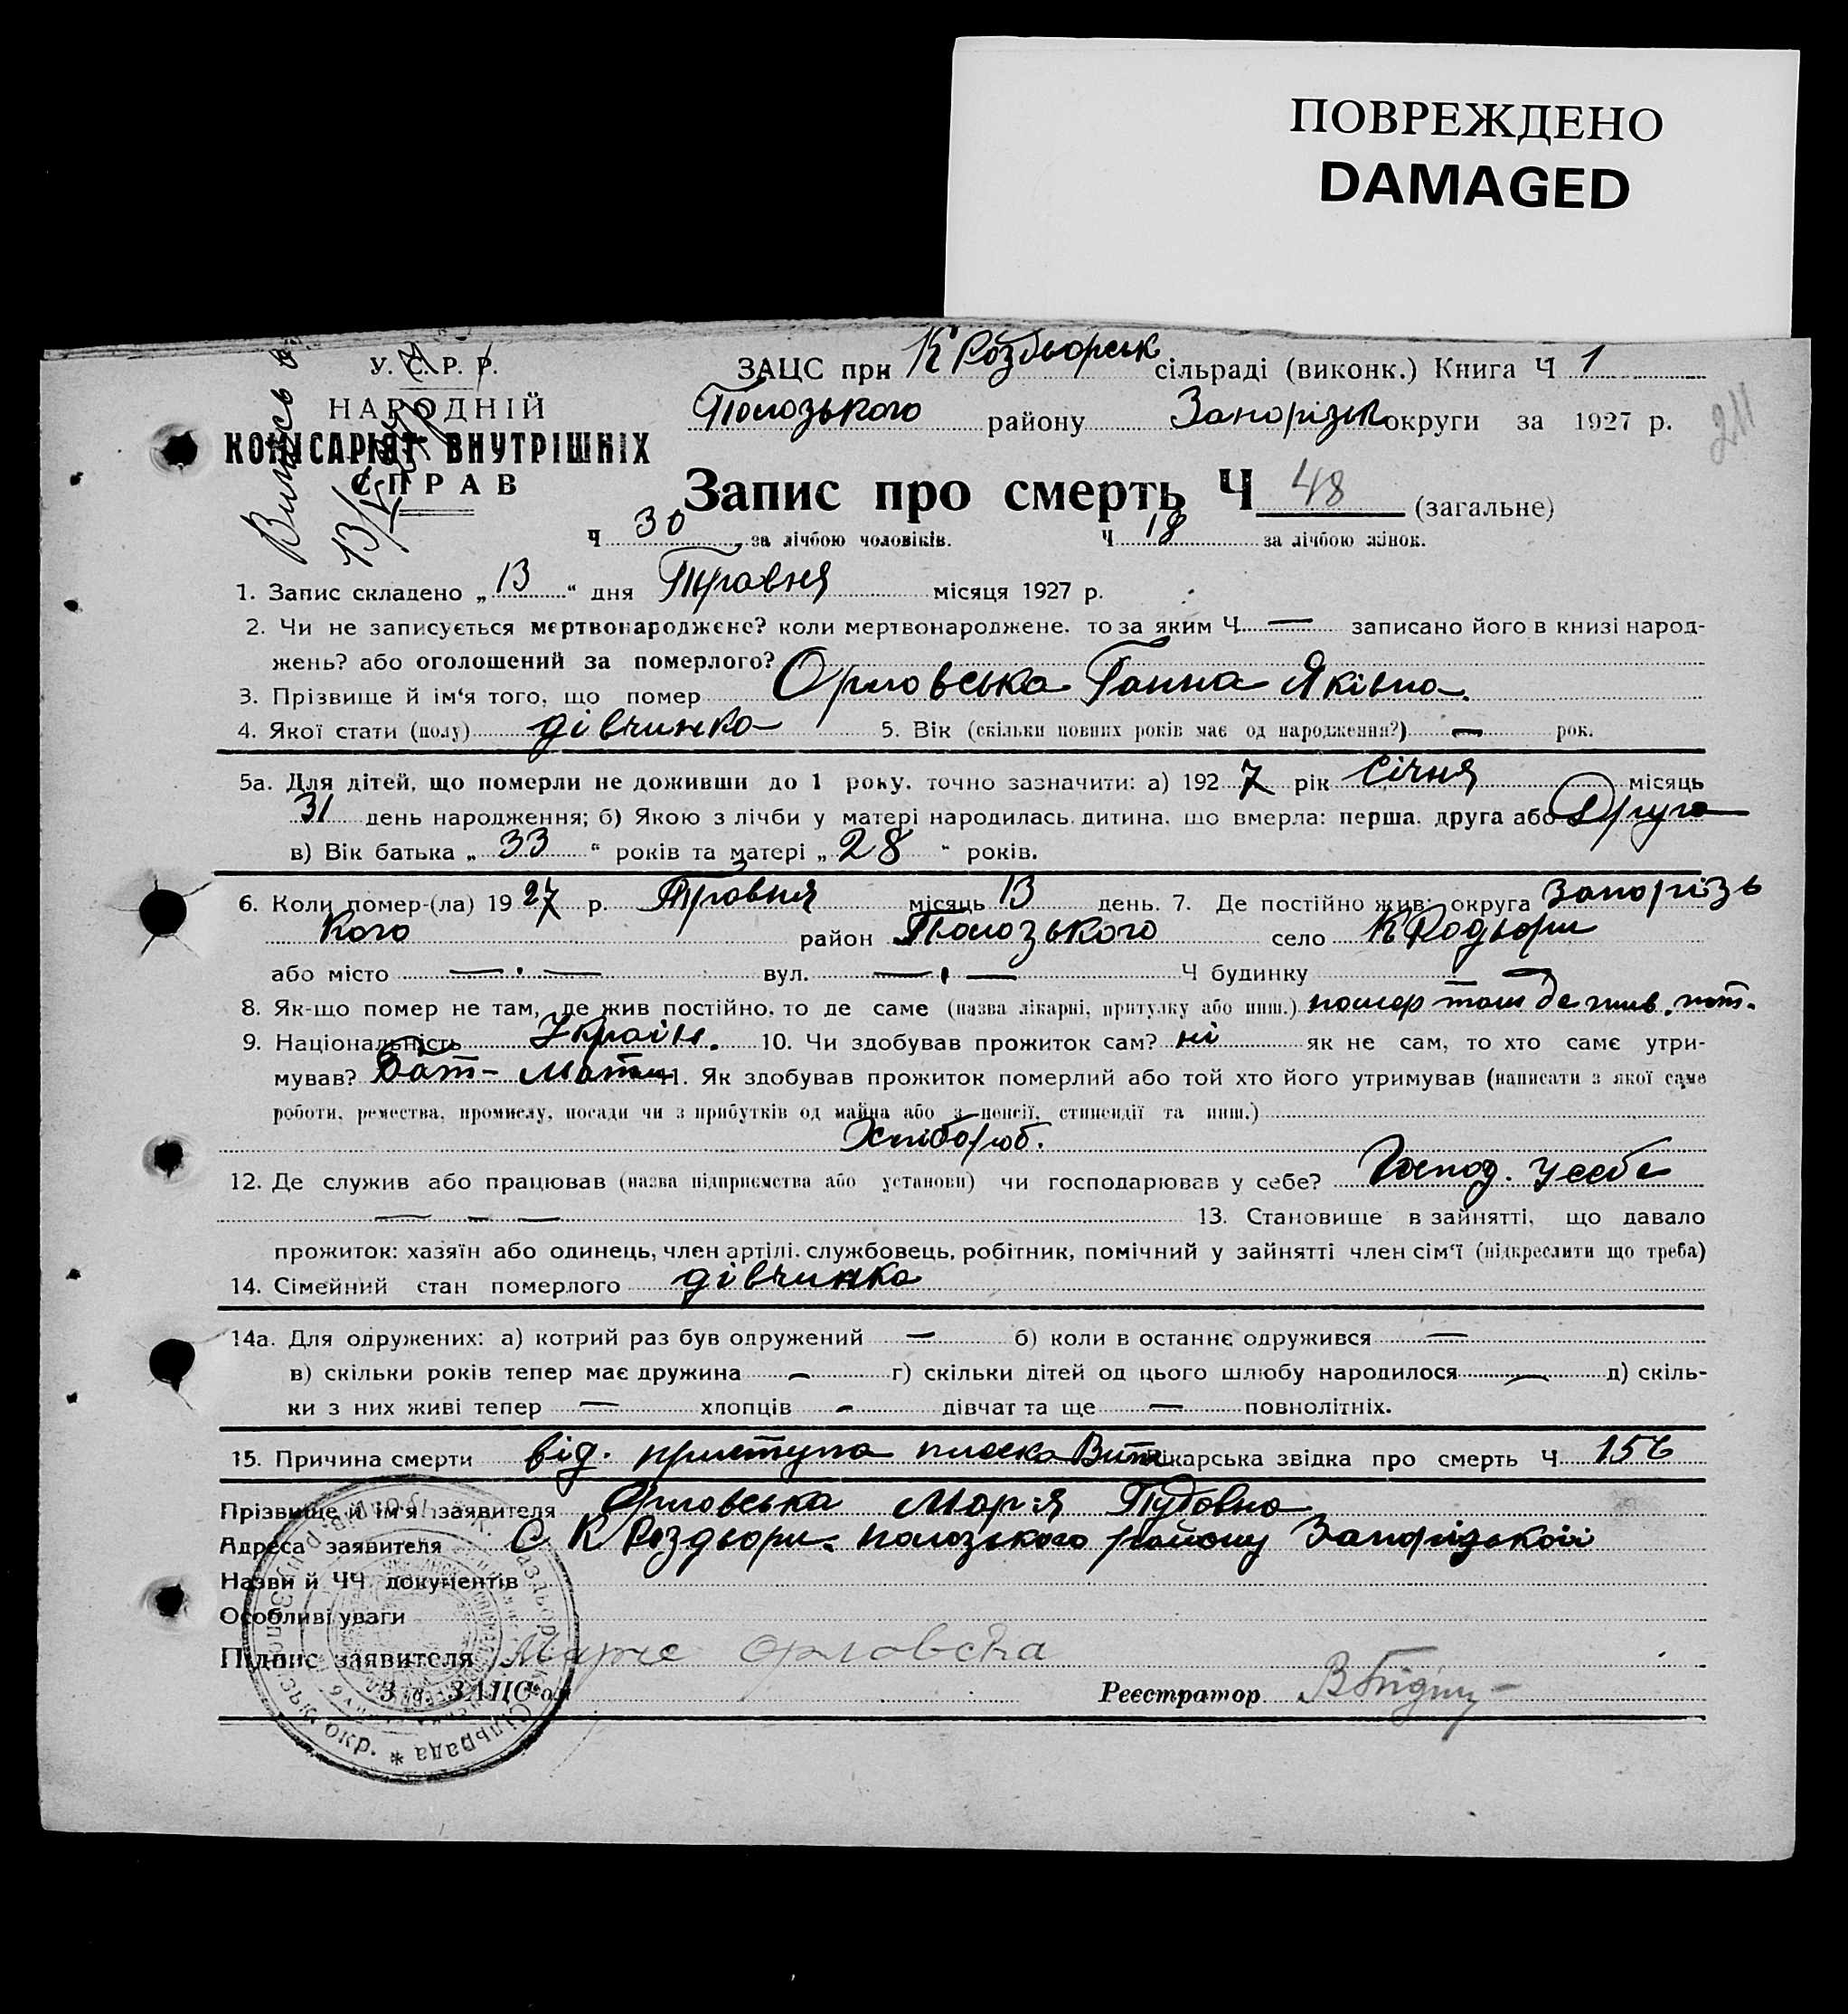 ПОВРЕЖДЕНО
DAMAGED
У. С. Р. Р.
НАРОДНІЙ
КОМІСАРІЯТ ВНУТРІШНІХ
СПРАВ
13/
ЗАЦС при К Роздьорськ сільраді (виконк.) Книга Ч 1
Пологського району Запорізьк округи за 1927 р.
211
Запис про смерть Ч 48 (загальне)
Ч 30 за лічбою чоловіків. Ч 18 за лічбою жінок.
1. Запис складено „ 13 “ дня Травня місяця 1927 р.
2. Чи не записується мертвонароджене? коли мертвонароджене, то за яким Ч — записано його в книзі народ-
жень? або оголошений за померлого?
3. Прізвище й ім‘я того, що помер Орловська Ганна Яківна.
4. Якої стати (полу) дівчинка 5. Вік (скільки повних років має од народження?) — рок.
5а. Для дітей, що померли не доживши до 1 року, точно зазначити: а) 1927 рік Січня місяць
31 день народження; б) Якою з лічби у матері народилась дитина, що вмерла: перша, друга або Друга
в) Вік батька „ 33 “ років та матері „ 28 “ років.
6. Коли помер-(ла) 1927 р. Травня місяць 13 день. 7. Де постійно жив: округа Запорізь
кого район Полозького село К Роздьори
або місто — . — вул. — . — Ч будинку —
8. Як-що помер не там, де жив постійно, то де саме (назва лікарні, притулку або инш.) помер там де жив. пост.
9. Національність Україн. 10. Чи здобував прожиток сам? ні як не сам, то хто саме утри-
мував? Бат- Мати 11. Як здобував прожиток померлий або той хто його утримував (написати з якої саме
роботи, ремества, промислу, посади чи з прибутків од майна або з пенсії, стипендії та инш.)
Хлібороб.
12. Де служив або працював (назва підприємства або установи) чи господарював у себе? Господ. у себе
— - — 13. Становище в зайнятті, що давало
прожиток: хазяїн або одинець, член артілі, службовець, робітник, помічний у зайнятті член сім‘ї (підкреслити що треба)
14. Сімейний стан померлого дівчинка
14а. Для одружених: а) котрий раз був одружений — б) коли в останнє одружився —
в) скільки років тепер має дружина — г) скільки дітей од цього шлюбу народилося — д) скіль-
ки з них живі тепер — хлопців - дівчат та ще — повнолітніх.
15. Причина смерти від. приступа Лікарська звідка про смерть Ч 156
Прізвище й ім‘я заявителя Орловська Мар'я
Адреса заявителя С К Роздьори. полозького району Запорізької
Назви й ЧЧ документів
Особливі уваги
Підпис заявителя Марие Орловска
Зав. ЗАЦС'ом Реєстратор
Сільрада * окр.